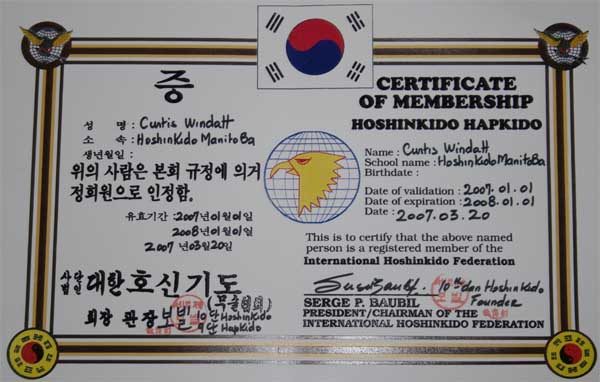 증
성 명 : Curtis Windatt
소 속 : Hoshinkido Manitoba
생년월일 :
위의 사람은 본회 규정에 의거
정회원으로 인정함.
유효기간 : 2007 년 01 월 01
2008 년 01 월 01
2007 년 03 월 20 일
사단법인 대한호신기도
회장 관장 보빌 10단 Hoshinkido
9단 Hapkido
CERTIFICATE
OF MEMBERSHIP
HOSHINKIDO HAPKIDO
Name : Curtis Windatt
School name : Hoshinkido Manitoba
Birthdate :
Date of validation : 2007.01.01
Date of expiration : 2008.01.01
Date : 2007.03.20
This is to certify that the above named
person is a registered member of the
International Hoshinkido Federation
10th dan Hoshinkido
Founder
SERGE P. BAUBIL
PRESIDENT/CHAIRMAN OF THE
INTERNATIONAL HOSHINKIDO FEDERATION